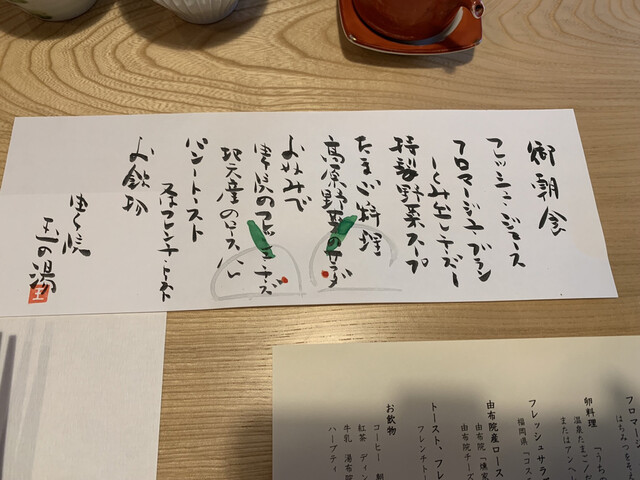 御朝食
フレッシュジュース
フロマージュブラン
ーくみ出しチーズー
特製野菜スープ
たまご料理
高原野菜のサラダ
お好みで
地元産のロースハム
パン・トースト
又はフレンチトースト
お飲物
ゆふ院
玉の湯
フロマージ
はちみつをそ
卵料理
温泉たまご
またはアン
フレッシュサラ
福岡県「コス
由布院産ロース
由布院「燻家
由布院チーズ
トースト、フレ
フレンチトー
お飲物
コーヒー
紅茶
牛乳
ハーブティ